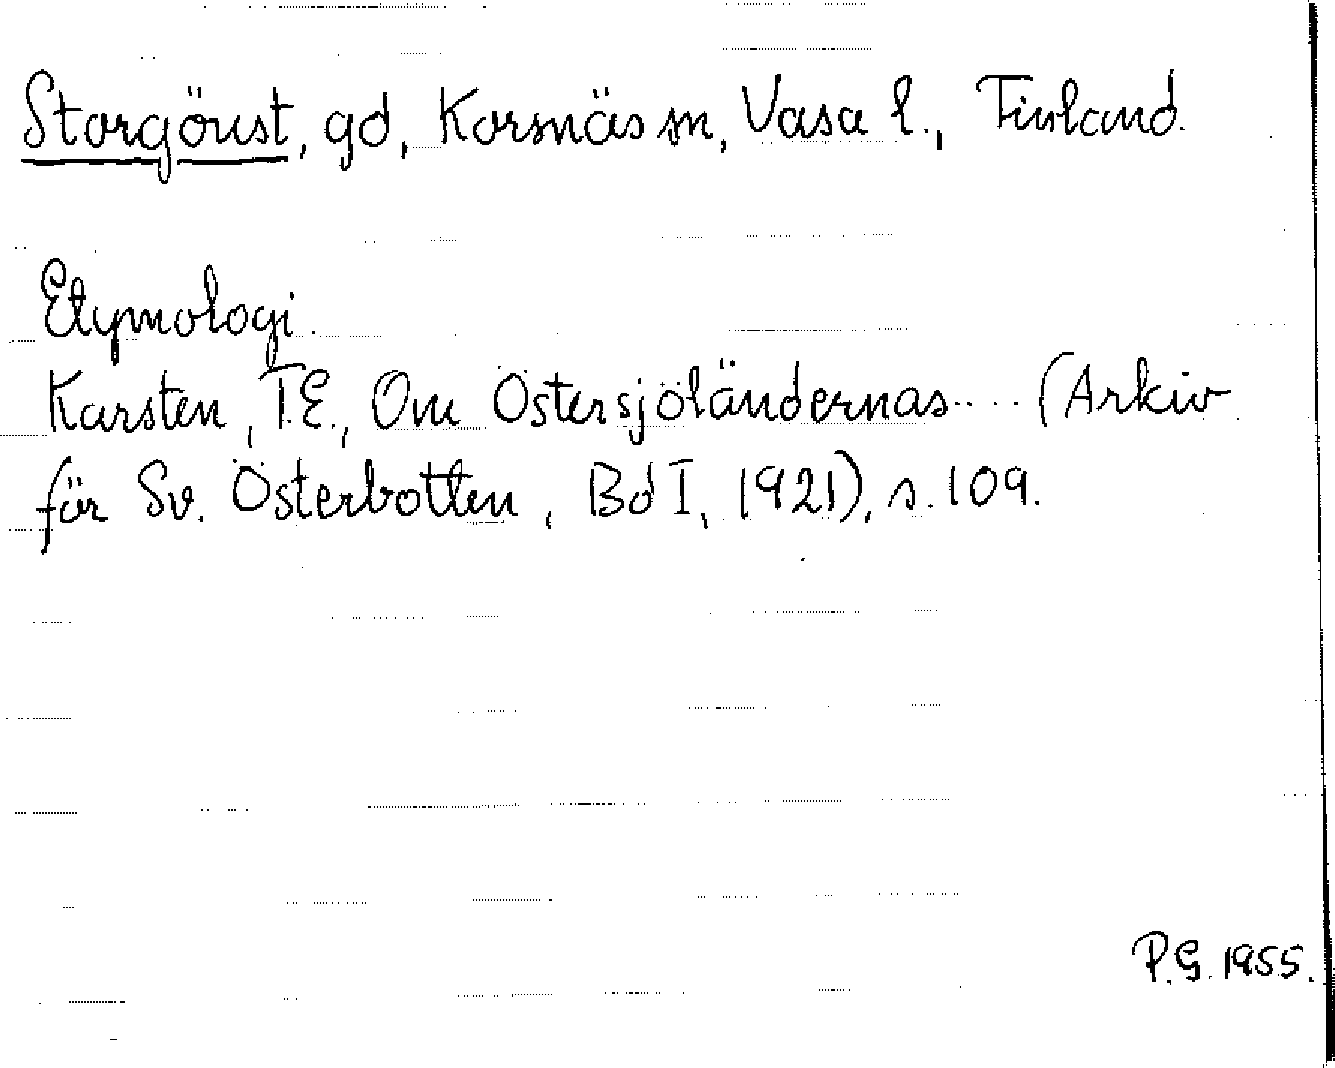 Storgöust, gd, Korsnäs sn, Vasa l., Finland.
Etymologi.
Karsten, T.E., Om Östersjöländernas.... (Arkiv
för Sv. Österbotten, Bd I, 1921), s. 109.
P.G. 1955.